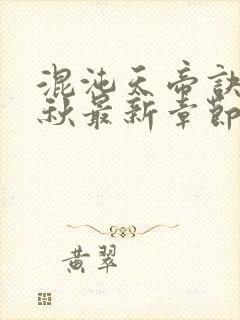 混沌天帝诀
秋最新章節
黄翠